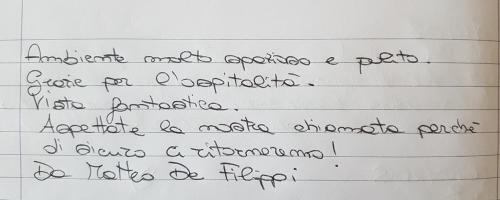 Ambiente molto spazioso e pulito.
Grazie per l'ospitalità.
Vista fantastica.
Aspettate la nostra chiamata perché
di sicuro ci ritorneremo!
Da Matteo De Filippi